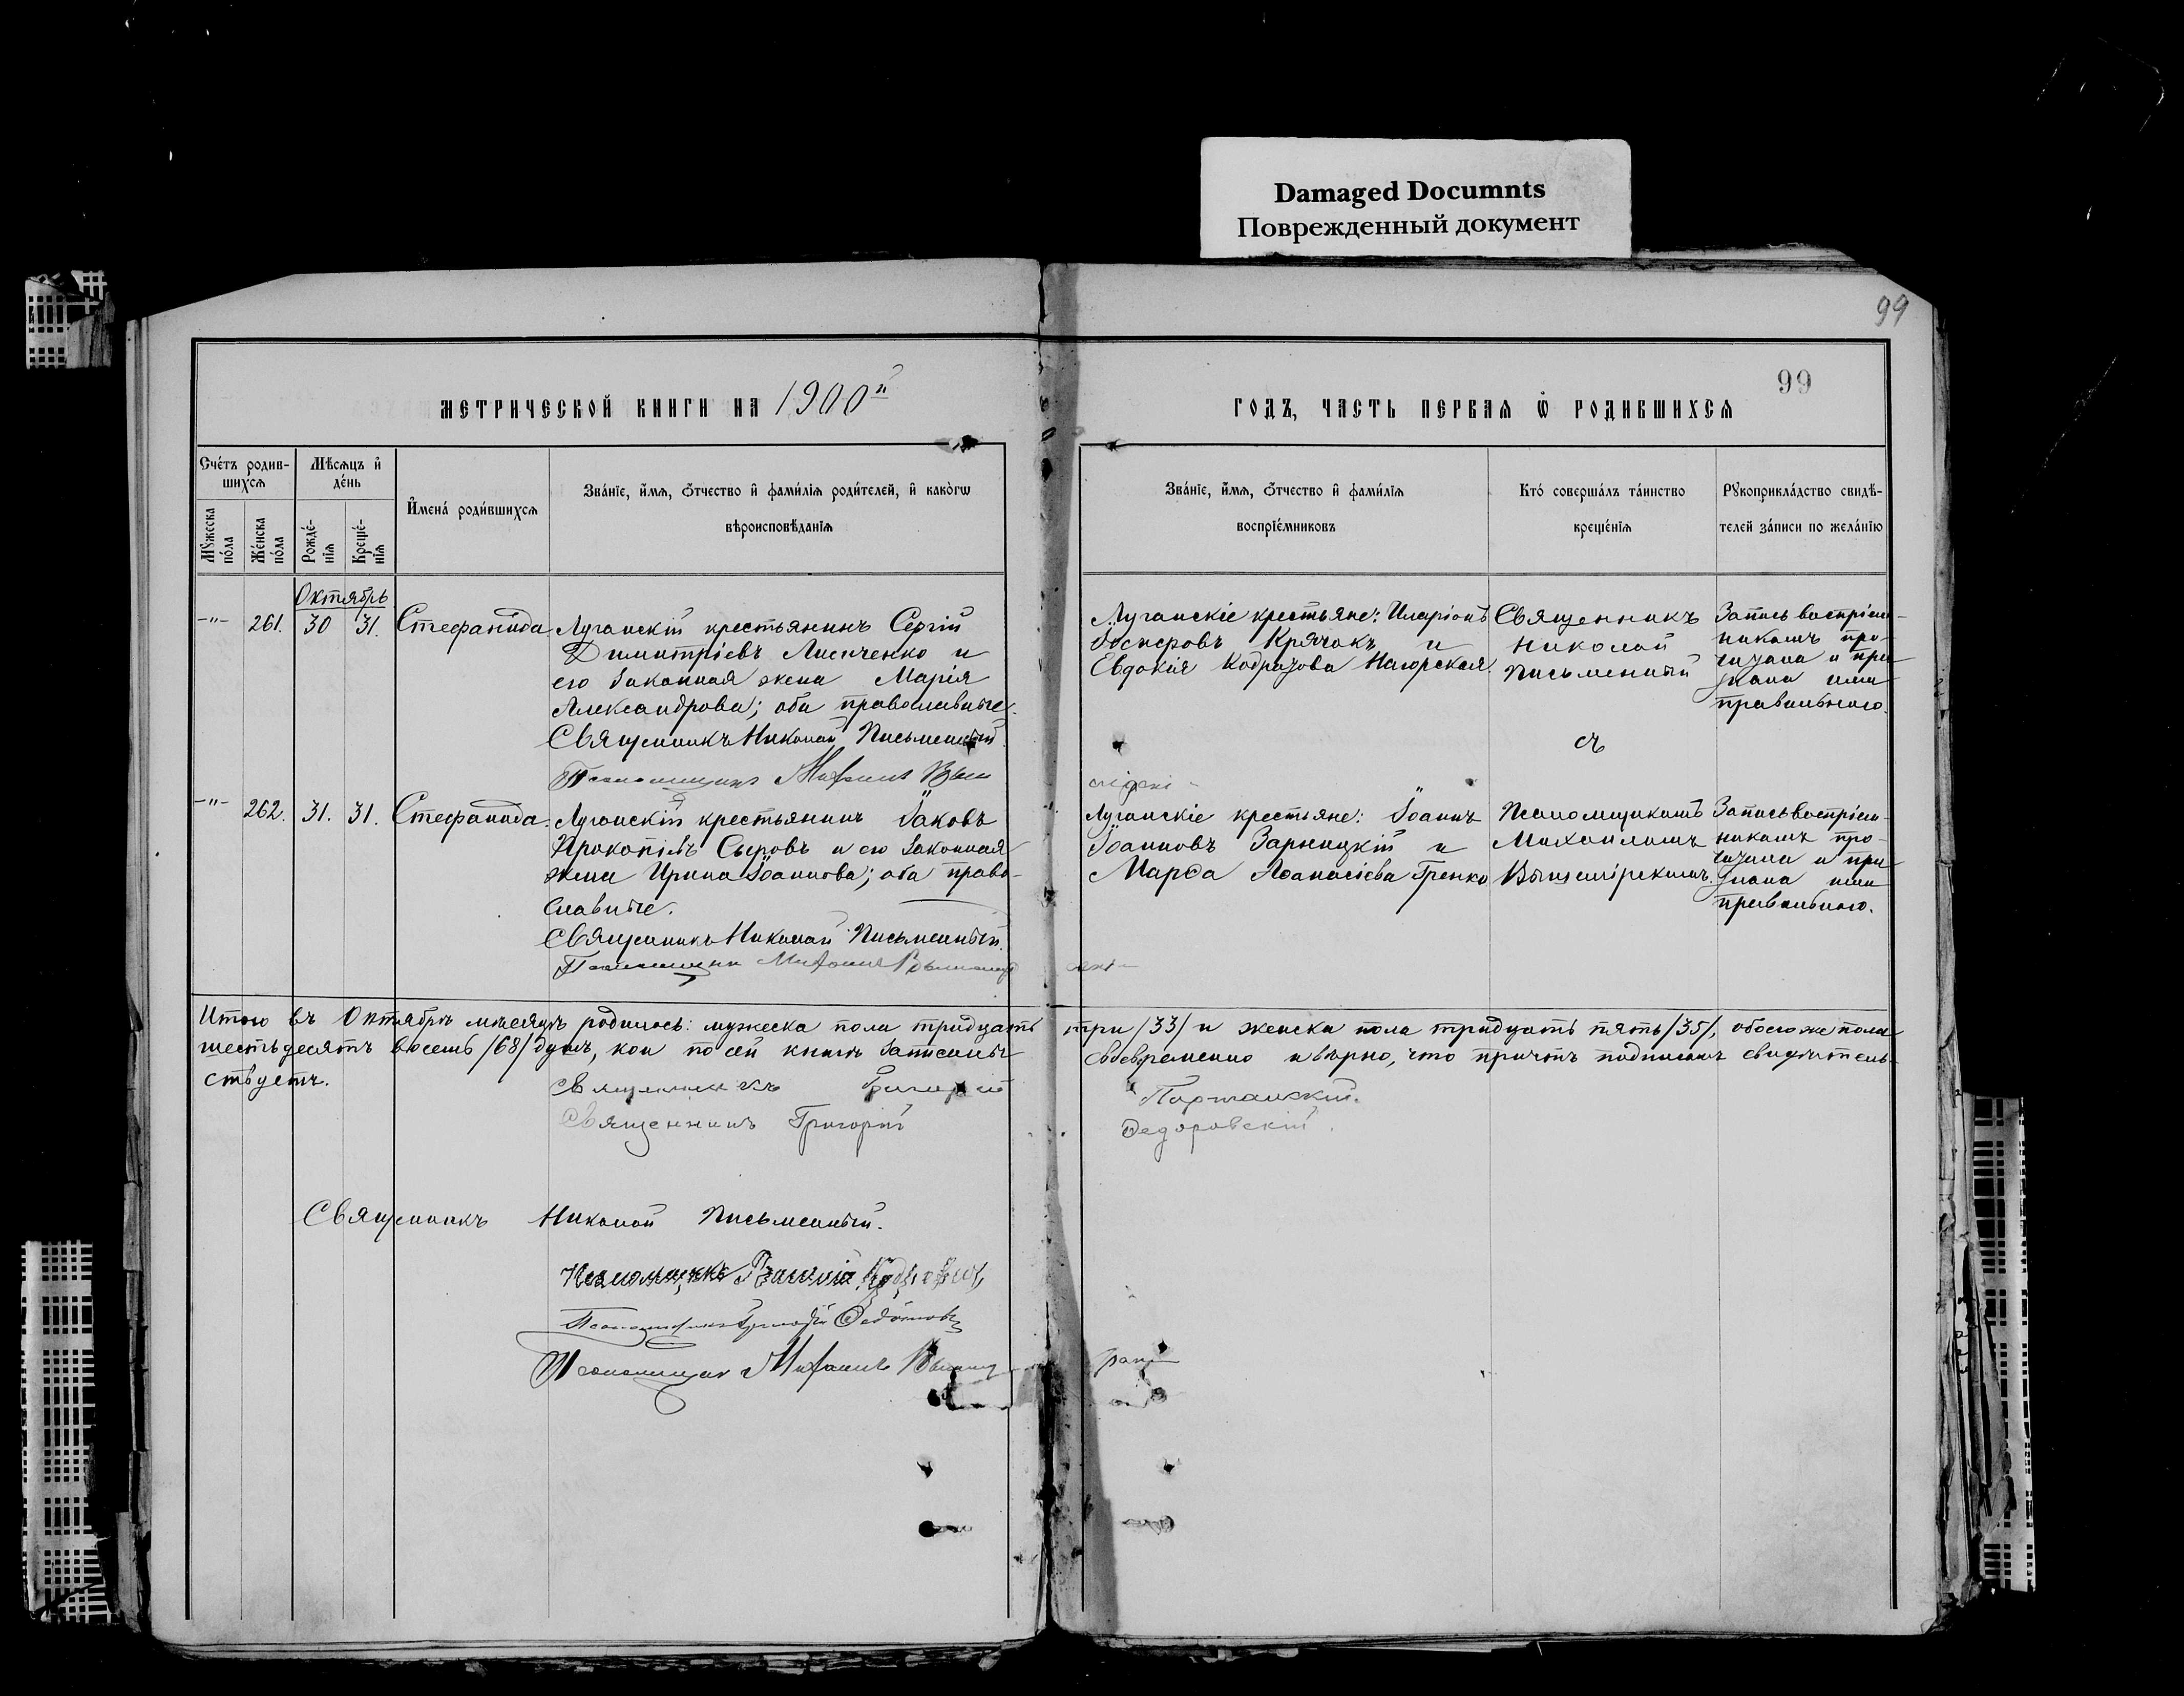 Damaged Documnts
Поврежденный документ
99
99
МЕТРИЧЕСКОЙ КНИГИ НА 1900й
ГОДЪ, ЧАСТЬ ПЕРВАЯ Ѽ РОДИВШИХСЯ
Сче́тъ родив-
шихсѧ
Мꙋжеска по́ла
Же́нска по́ла
Мѣ́сѧцъ и҆ де́нь
Рожде́-нїѧ
Креще́-нїѧ
И҆мена̀ роди́вшихсѧ
Зва́нїе, и҆́мѧ, ѻ҆́тчество и҆ фами́лїѧ роди́телей, и҆ како́гѡ
вѣроисповѣ́данїѧ
Зва́нїе, и҆́мѧ, ѻ҆́тчество и҆ фами́лїѧ
воспрїе́мниковъ
Кто̀ соверша́лъ та́инство
креще́нїѧ
Рꙋкоприкла́дство свидѣ́-
телей за́писи по жела́нїю
Октябрь
-"- 261. 30 31. Стефанида.
Луганскій крестьянинъ Сергій
Димитріевъ Лисиченко и
его законная жена Марія
Александрова; оба православные.
Священникъ Николай Письменный.
Псаломщикъ Михаилъ
Луганскіе крестьяне: Иларіонъ
Крячокъ и
Евдокія Нагорская.
Священникъ
Николай
Письменный
съ
Запись воспріем-
никамъ про-
читана и при
знана ими
правильною.
-"- 262. 31. 31. Стефанида.
Луганскій крестьянинъ Іаковъ
Прокопіевъ Сыровъ и его законная
жена Ирина Іоаннова; оба право-
славные.
Священникъ Николай Письменный.
Псаломщикъ Михаилъ
Луганскіе крестьяне: Іоаннъ
Іоанновъ Зарницкій и
Марѳа Аѳанасіева Гренко
Псаломщикомъ
Михаиломъ
Вышемірскимъ.
Запись воспріем-
никамъ про-
читана и при
знана ими
правильною.
Итого въ Октябрѣ мѣсяцѣ родилось: мужеска пола тридцать три /33/ и женска пола тридцать пять /35/, обоего же пола
шестьдесятъ восемь /68/ душъ, кои по сей книгѣ записаны своевременно и вѣрно, что причтъ подписомъ свидѣтель-
ствуетъ.
Священникъ Григорій
Священникъ Григорій Федоровскій.
Священникъ Николай Письменный.
Псаломщикъ
Псаломщикъ
Псаломщикъ Михаилъ